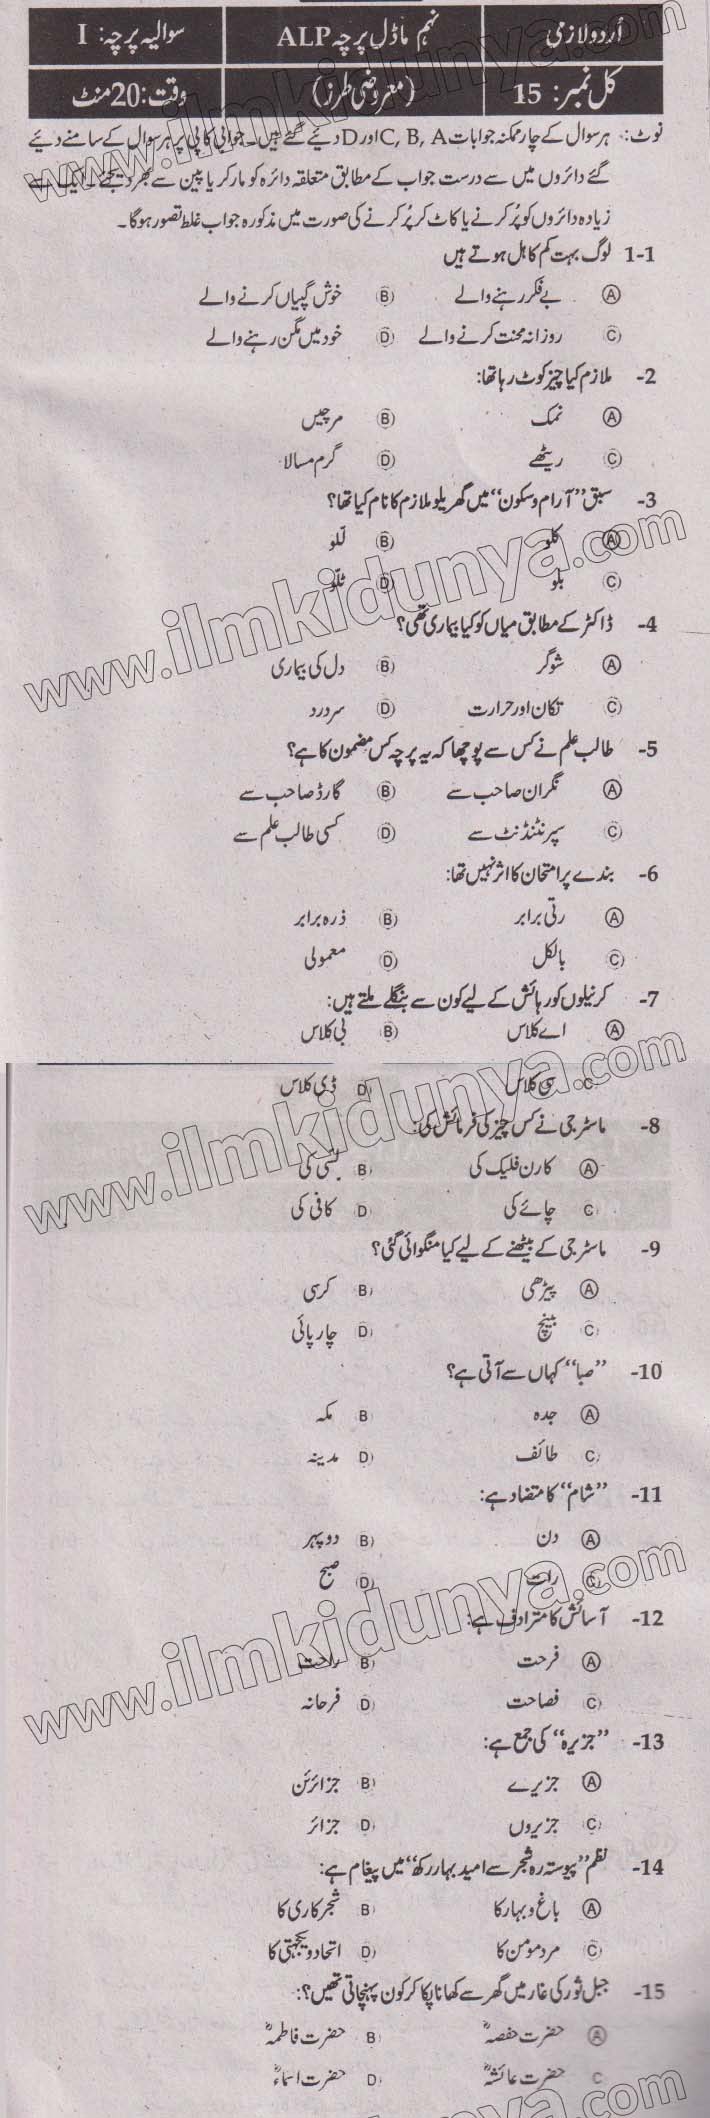 اُردو لازمی
نہم ماڈل پرچہ ALP
سوالیہ پرچہ: I
کل نمبر: 15
(معروضی طرز)
وقت: 20 منٹ
نوٹ: ہر سوال کے چار ممکنہ جوابات C, B, A اور D دیئے گئے ہیں۔ جوابی کاپی پر ہر سوال کے سامنے دیئے
گئے دائروں میں سے درست جواب کے مطابق متعلقہ دائرہ کو مارکر یا پین سے بھر دیجئے۔ ایک سے
زیادہ دائروں کو پُر کرنے یا کاٹ کر پُر کرنے کی صورت میں مذکورہ جواب غلط تصور ہوگا۔
1-1 لوگ بہت کم کاہل ہوتے ہیں
(A) بے فکر رہنے والے (B) خوش گپیاں کرنے والے
(C) روزانہ محنت کرنے والے (D) خود میں مگن رہنے والے
2- ملازم کیا چیز کوٹ رہا تھا:
(A) نمک (B) مرچیں
(C) ریٹھے (D) گرم مسالا
3- سبق ”آرام و سکون“ میں گھریلو ملازم کا نام کیا تھا؟
(A) کلو (B) للّو
(C) بلو (D) ٹلّو
4- ڈاکٹر کے مطابق میاں کو کیا بیماری تھی؟
(A) شوگر (B) دل کی بیماری
(C) تکان اور حرارت (D) سر درد
5- طالب علم نے کس سے پوچھا کہ یہ پرچہ کس مضمون کا ہے؟
(A) نگران صاحب سے (B) گارڈ صاحب سے
(C) سپرنٹنڈنٹ سے (D) کسی طالب علم سے
6- بندے پر امتحان کا اثر نہیں تھا:
(A) رتی برابر (B) ذرہ برابر
(C) بالکل (D) معمولی
7- کرنیلوں کو رہائش کے لیے کون سے بنگلے ملتے ہیں:
(A) اے کلاس (B) بی کلاس
C سی کلاس D) ڈی کلاس
8- ماسٹر جی نے کس چیز کی فرمائش کی:
(A) کارن فلیک کی B) لسّی کی
C) چائے کی D) کافی کی
9- ماسٹر جی کے بیٹھنے کے لیے کیا منگوائی گئی؟
(A) پیڑھی B) کرسی
C) بینچ D) چارپائی
10- ”صبا“ کہاں سے آتی ہے؟
(A) جدہ B مکہ
C) طائف D) مدینہ
11- ”شام“ کا متضاد ہے:
(A) دن B) دوپہر
(C) رات (D) صبح
12- آسائش کا مترادف ہے:
(A) فرحت B) راحت
C) فصاحت D) فرحانہ
13- ”جزیرہ“ کی جمع ہے:
(A) جزیرے B) جزائرَن
C) جزیروں D) جزائر
14- نظم ”پیوستہ رہ شجر سے امید بہار رکھ“ میں پیغام ہے:
(A) باغ و بہار کا B) شجر کاری کا
C) مردِ مومن کا D) اتحاد و یکجہتی کا
15- جبلِ ثور کی غار میں گھر سے کھانا پکا کر کون پہنچاتی تھیں؟:
(A) حضرت حفصہؓ B حضرت فاطمہؓ
C حضرت عائشہؓ D) حضرت اسماءؓ
www.ilmkidunya.com
www.ilmkidunya.com
www.ilmkidunya.com
www.ilmkidunya.com